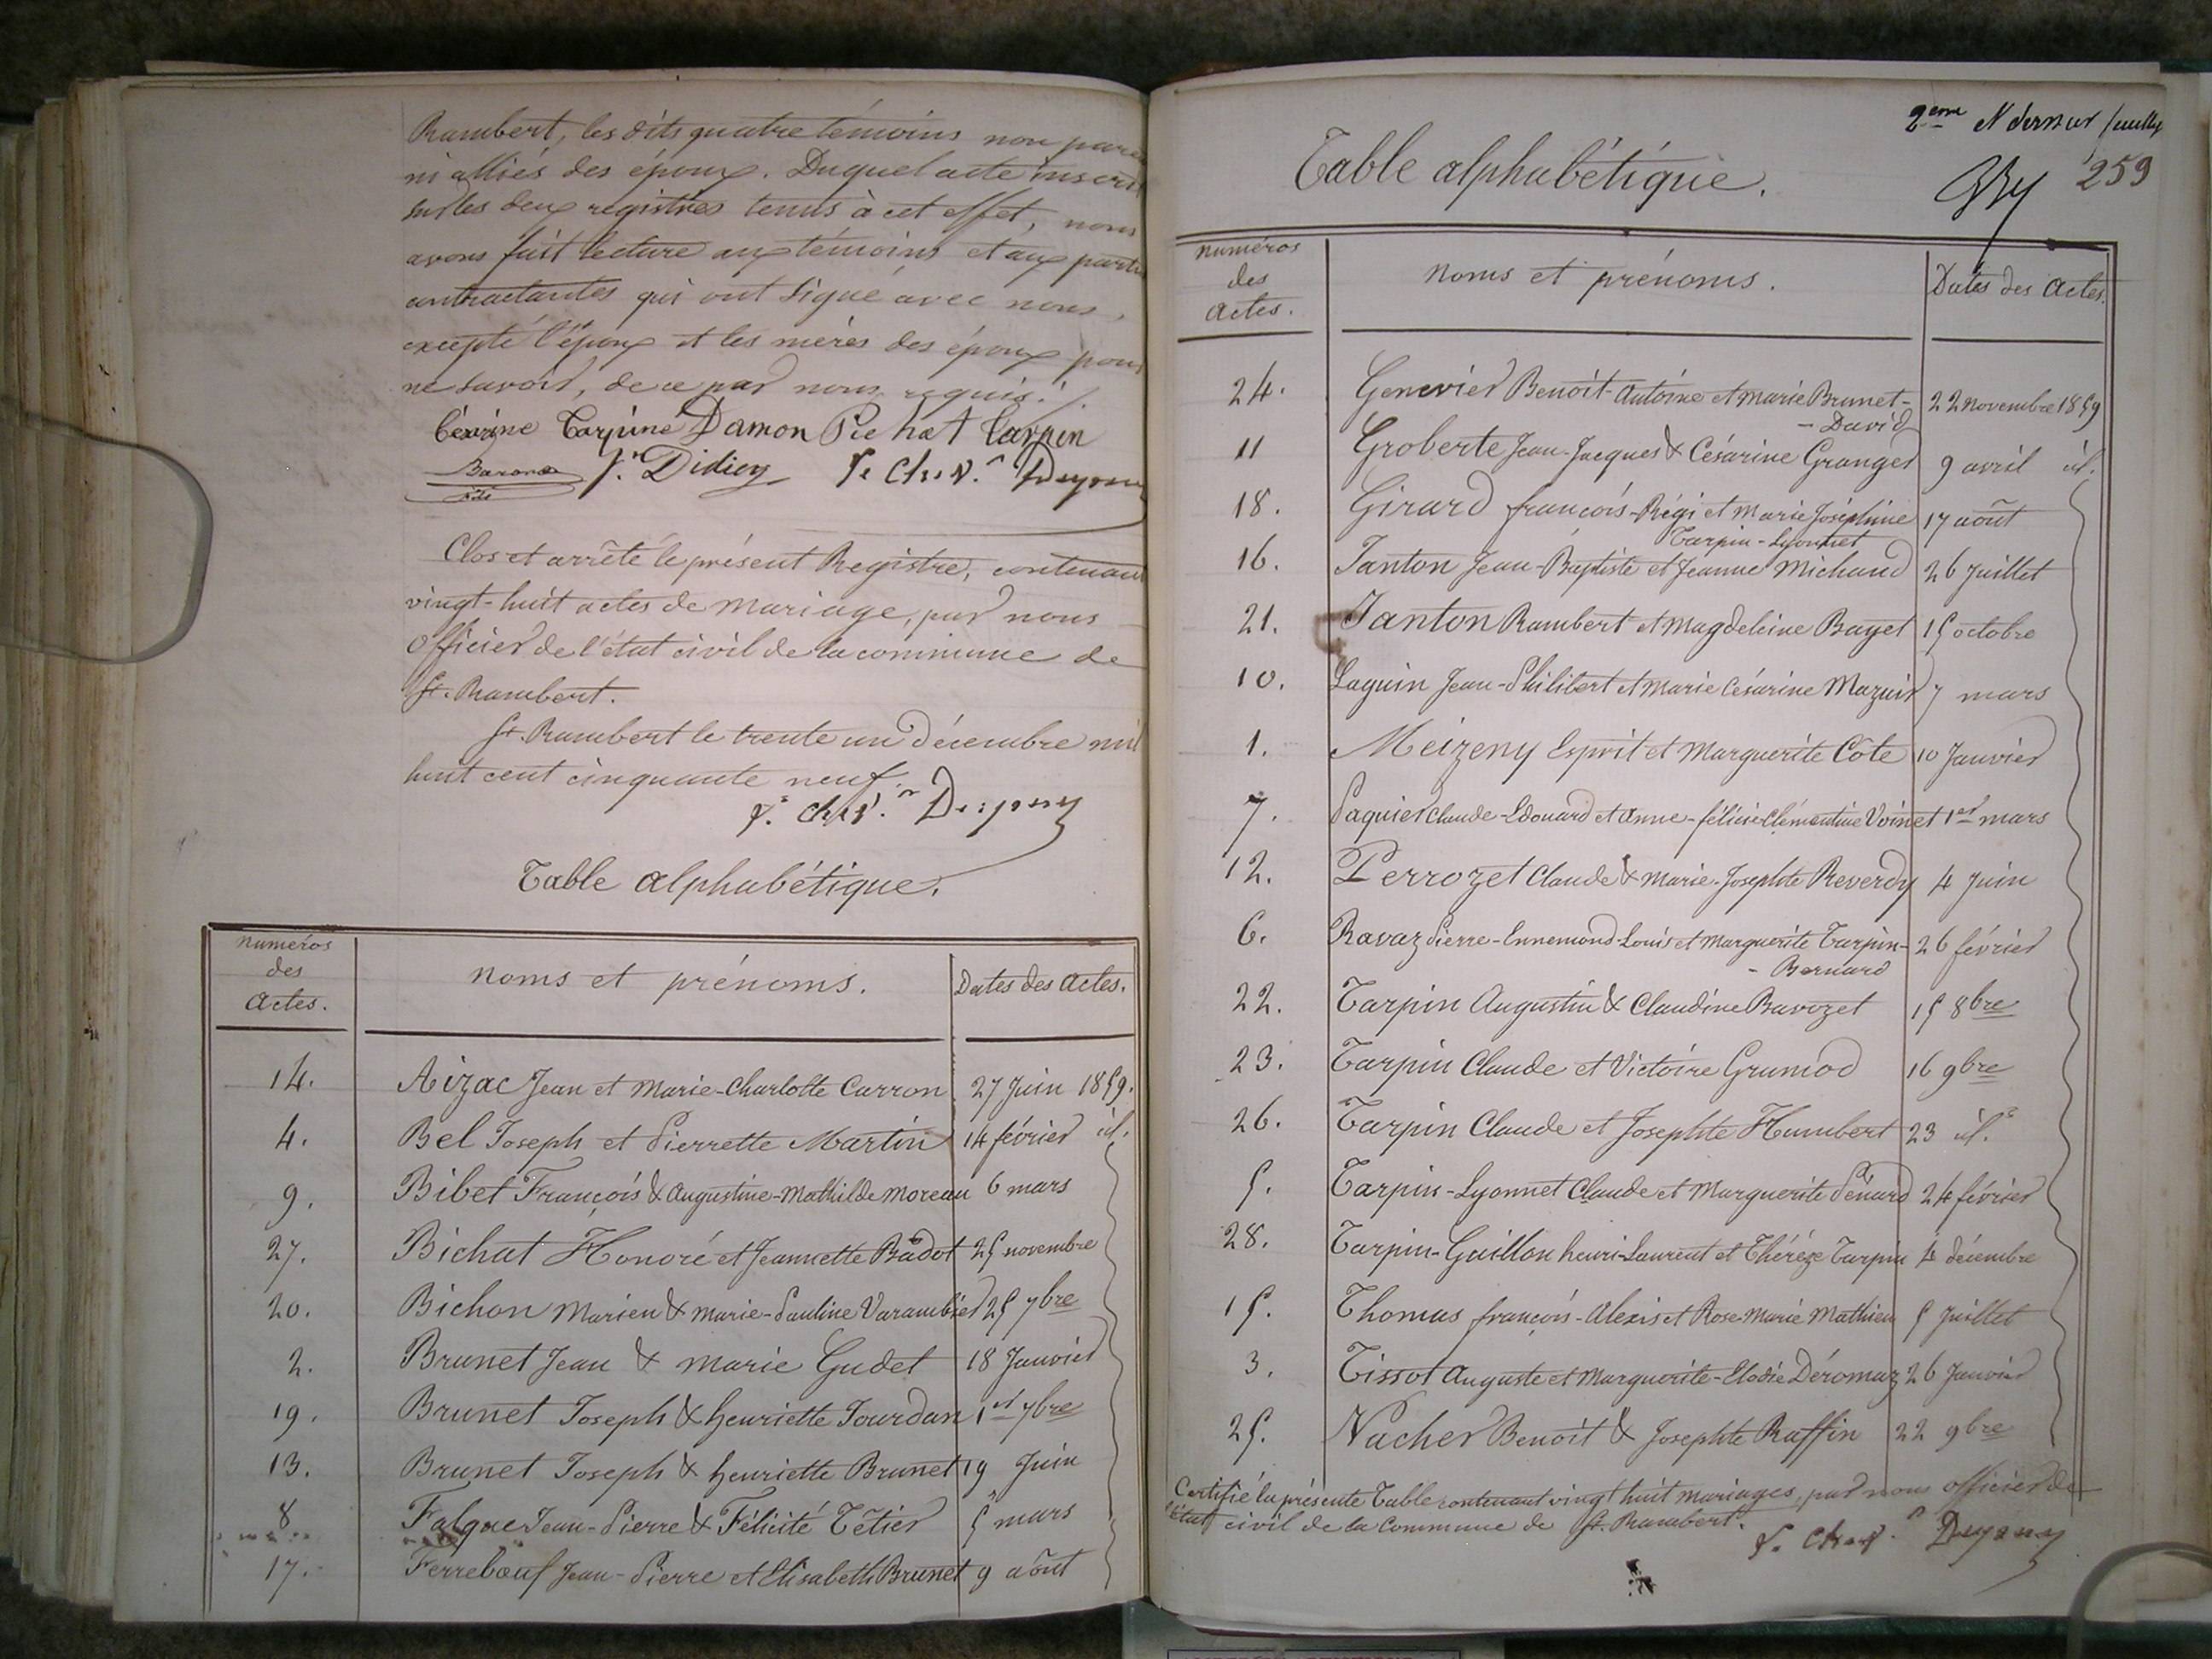 Rambert, les dits quatre témoins non
ni alliés des époux. Duquel acte
sur les deux registres tenus à cet effet, nous
avons fait lecture aux témoins et aux
contractantes qui ont signé avec nous,
excepté l'époux et les mères des époux pour
ne savoir, de ce par nous requis ./.
Damon Pichat Tarpin
Didier
Clos et arrêté le présent Registre, contenant
vingt-huit actes de mariage, par nous
Officier de l'état civil de la commune de
St. Rambert.
St. Rambert le trente un décembre mil
huit cent cinquante neuf.
Table alphabétique.
numéros des Actes. noms et prénoms. Dates des Actes.
14. Aizac Jean et Marie-Charlotte Carron 27 Juin 1859.
4. Bel Joseph et Pierrette Martin 14 février id.
9. Bibet François & Augustine-Mathilde Moreau 6 mars
27. Bichat Honoré et Jeannette Badot 25 novembre
20. Bichon Marien & Marie-Pauline Varambier 25 7bre
2. Brunet Jean & Marie Gudet 18 Janvier
19. Brunet Joseph & henriette Jourdan 1er 7bre
13. Brunet Joseph & henriette Brunet 19 Juin
8 Falque Jean-Pierre & Félicité Tétier 5 mars
17. Ferrebœuf Jean-Pierre et Elisabeth Brunet 9 août
2eme et dernier feuillet
259
Table alphabétique.
numéros des Actes. noms et prénoms. Dates des Actes.
24. Genevier Benoit-Antoine et Marie Brunet- 22 novembre 1859
- David
11 Groberte Jean-Jacques & Césarine Granger 9 avril id.
18. Girard françois-Régi et Marie Joséphine 17 août
Tarpin-Lyonnet
16. Janton Jean-Baptiste et Jeanne Michaud 26 Juillet
21. Janton Rambert et Magdeleine Bayet 15 octobre
10. Laguin Jean-Philibert et Marie Césarine Mazuir 7 mars
1. Meizeny Esprit et Marguerite Côte 10 Janvier
7. Paquier Claude-Edouard et Anne-félicie Clémentine Voinet 1er mars
12. Perrozet Claude & Marie-Josephte Reverdy 4 Juin
6. Ravaz Pierre-Ennemond-Louis et Marguerite Tarpin- 26 février
- Bernard
22. Tarpin Augustin & Claudine Bavozet 15 8bre
23. Tarpin Claude et Victoire Grumod 16 9bre
26. Tarpin Claude et Josephte Humbert 23 id.
5. Tarpin-Lyonnet Claude et Marguerite Pénard 24 février
28. Tarpin-Guillon henri-Laurent et Thérèze Tarpin 4 décembre
15. Thomas françois-Alexis et Rose-Marie Mathieu 5 Juillet
3. Tissot Auguste et Marguerite-Elodie Déromaz 26 Janvier
25. Vacher Benoit & Josephte Raffin 22 9bre
Certifié la présente Table contenant vingt huit mariages, par nous officier de
l'état civil de la Commune de St. Rambert.